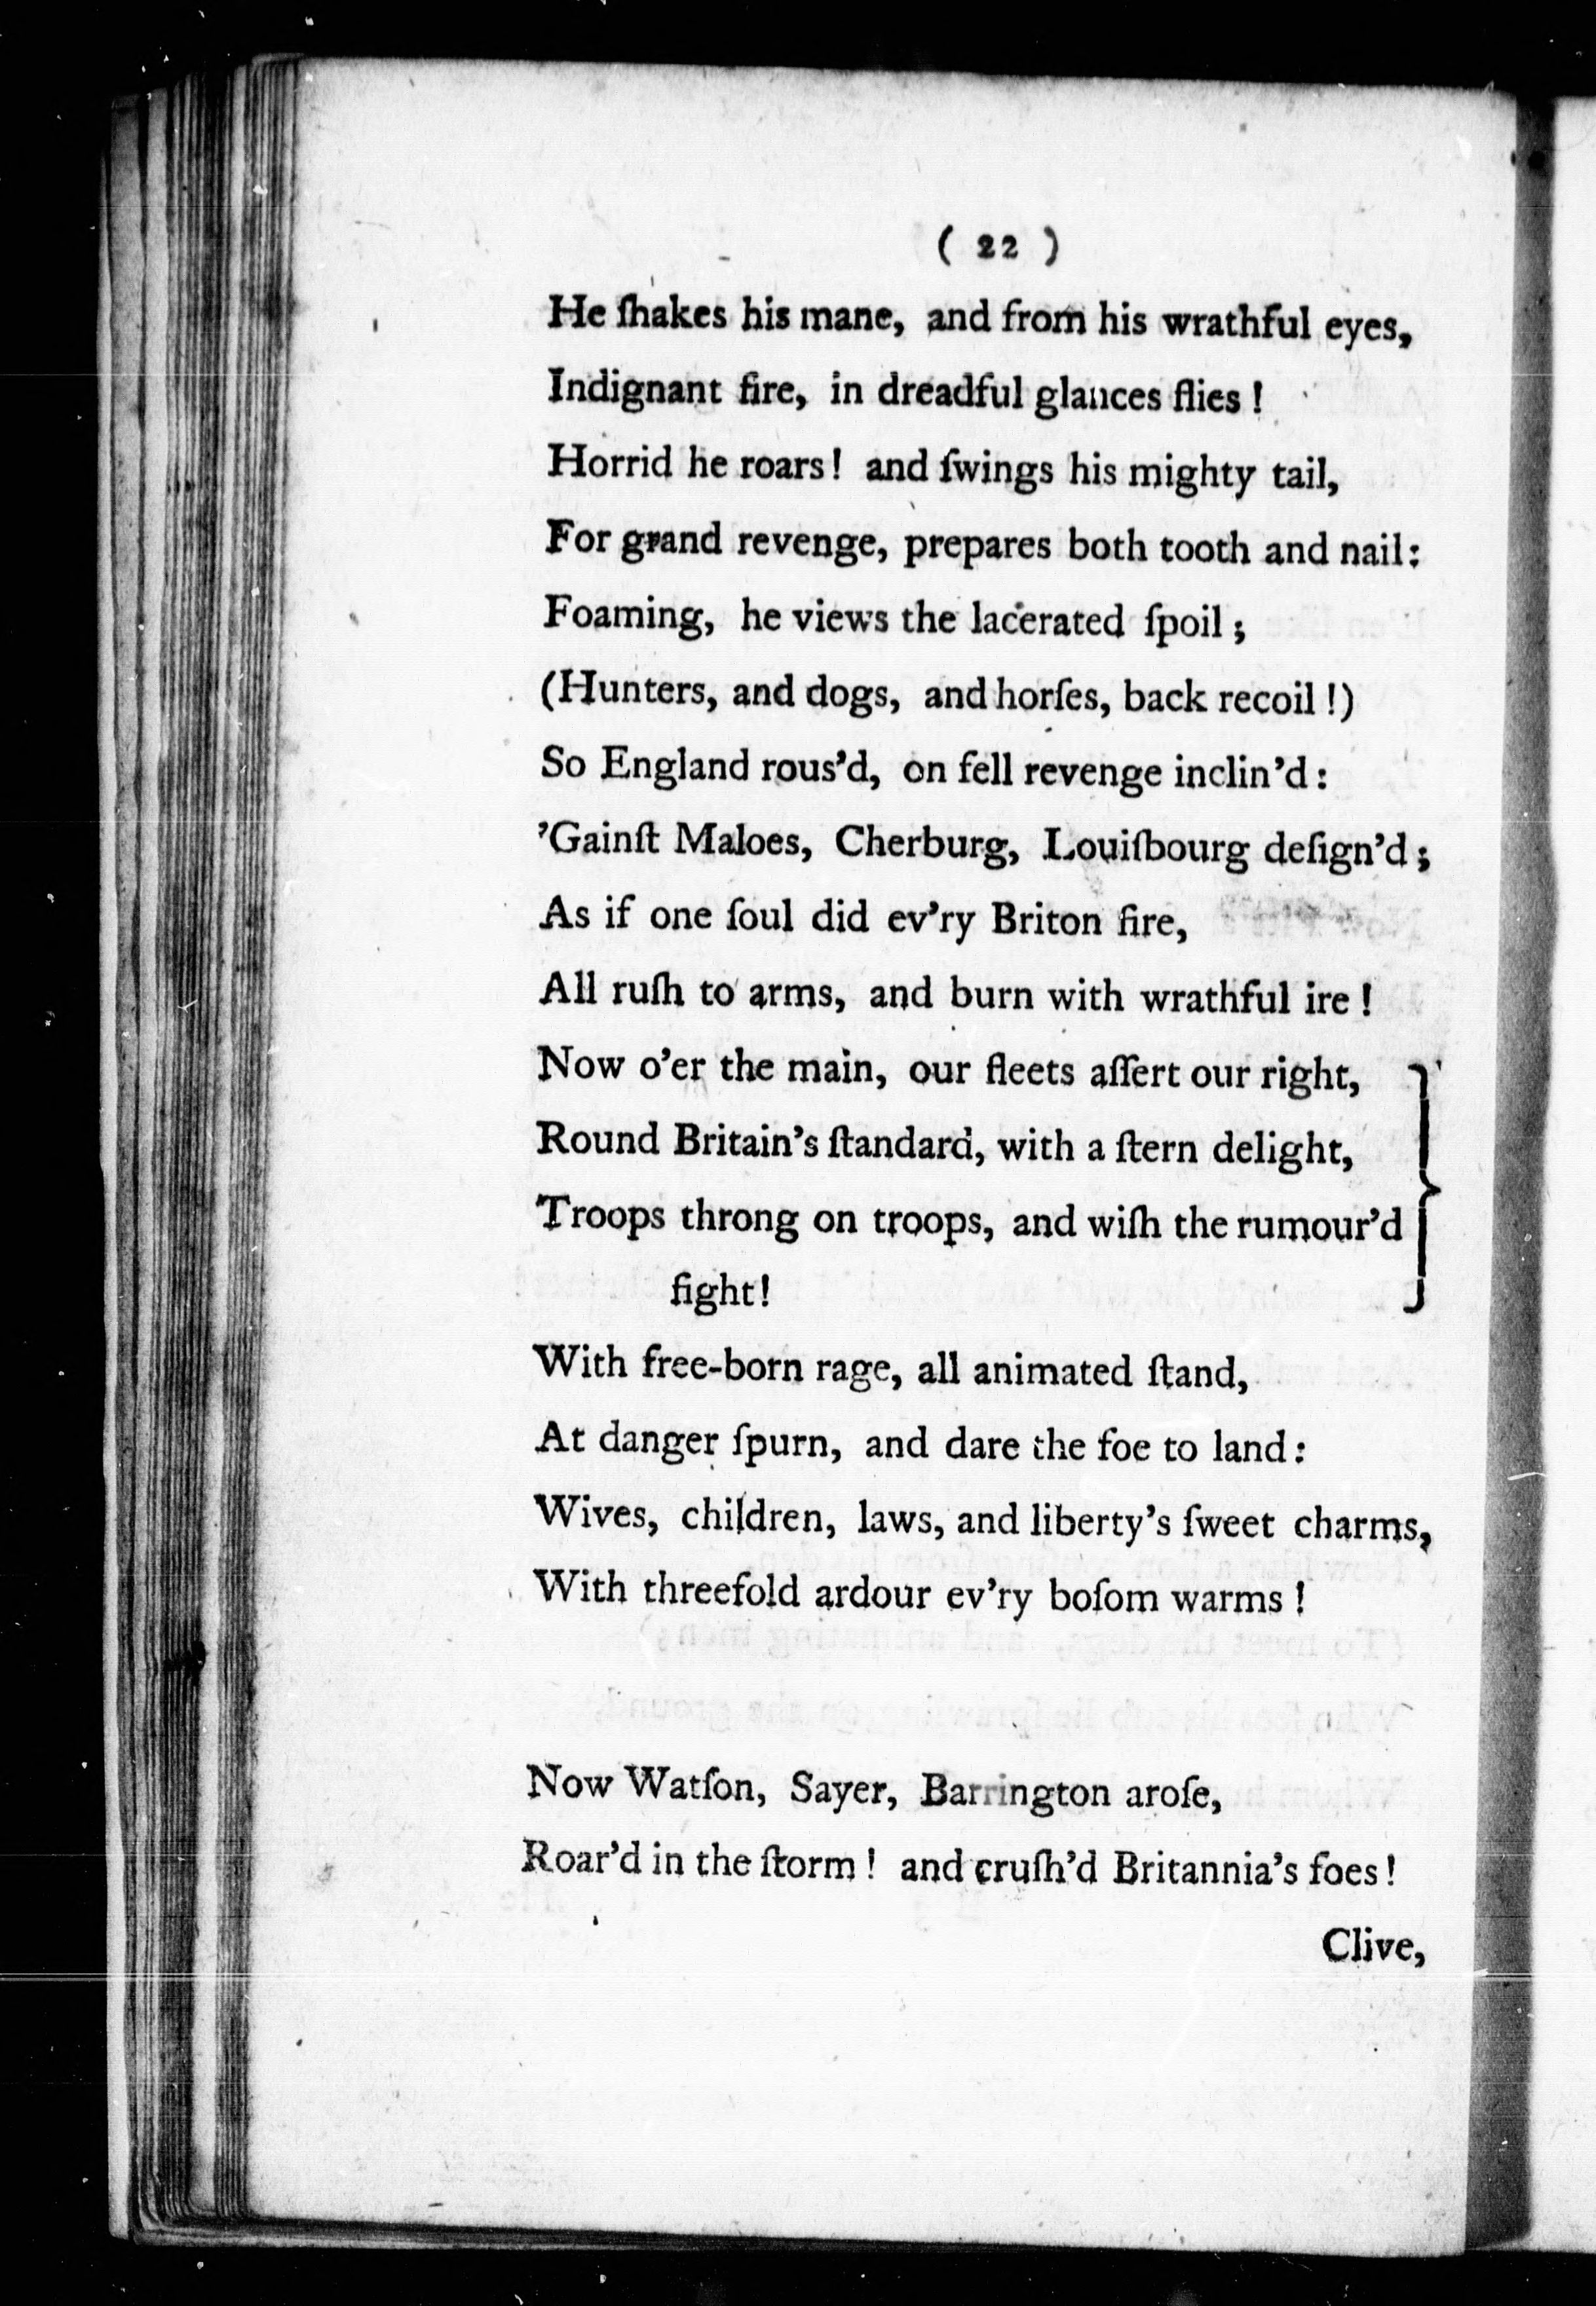 ( 22 )
He ſhakes his mane, and from his wrathful eyes,
Indignant fire, in dreadful glances flies !
Horrid he roars! and ſwings his mighty tail,
For grand revenge, prepares both tooth and nail:
Foaming, he views the lacerated ſpoil ;
(Hunters, and dogs, and horſes, back recoil !)
So England rous'd, on fell revenge inclin'd :
'Gainſt Maloes, Cherburg, Louiſbourg deſign'd ;
As if one ſoul did ev'ry Briton fire,
All ruſh to arms, and burn with wrathful ire !
Now o'er the main, our fleets aſſert our right,
Round Britain's ſtandard, with a ſtern delight,
Troops throng on troops, and wiſh the rumour'd
fight!
With free-born rage, all animated ſtand,
At danger ſpurn, and dare the foe to land :
Wives, children, laws, and liberty's ſweet charms,
With threefold ardour ev'ry boſom warms !
Now Watſon, Sayer, Barrington aroſe,
Roar'd in the ſtorm ! and cruſh'd Britannia's foes !
Clive,